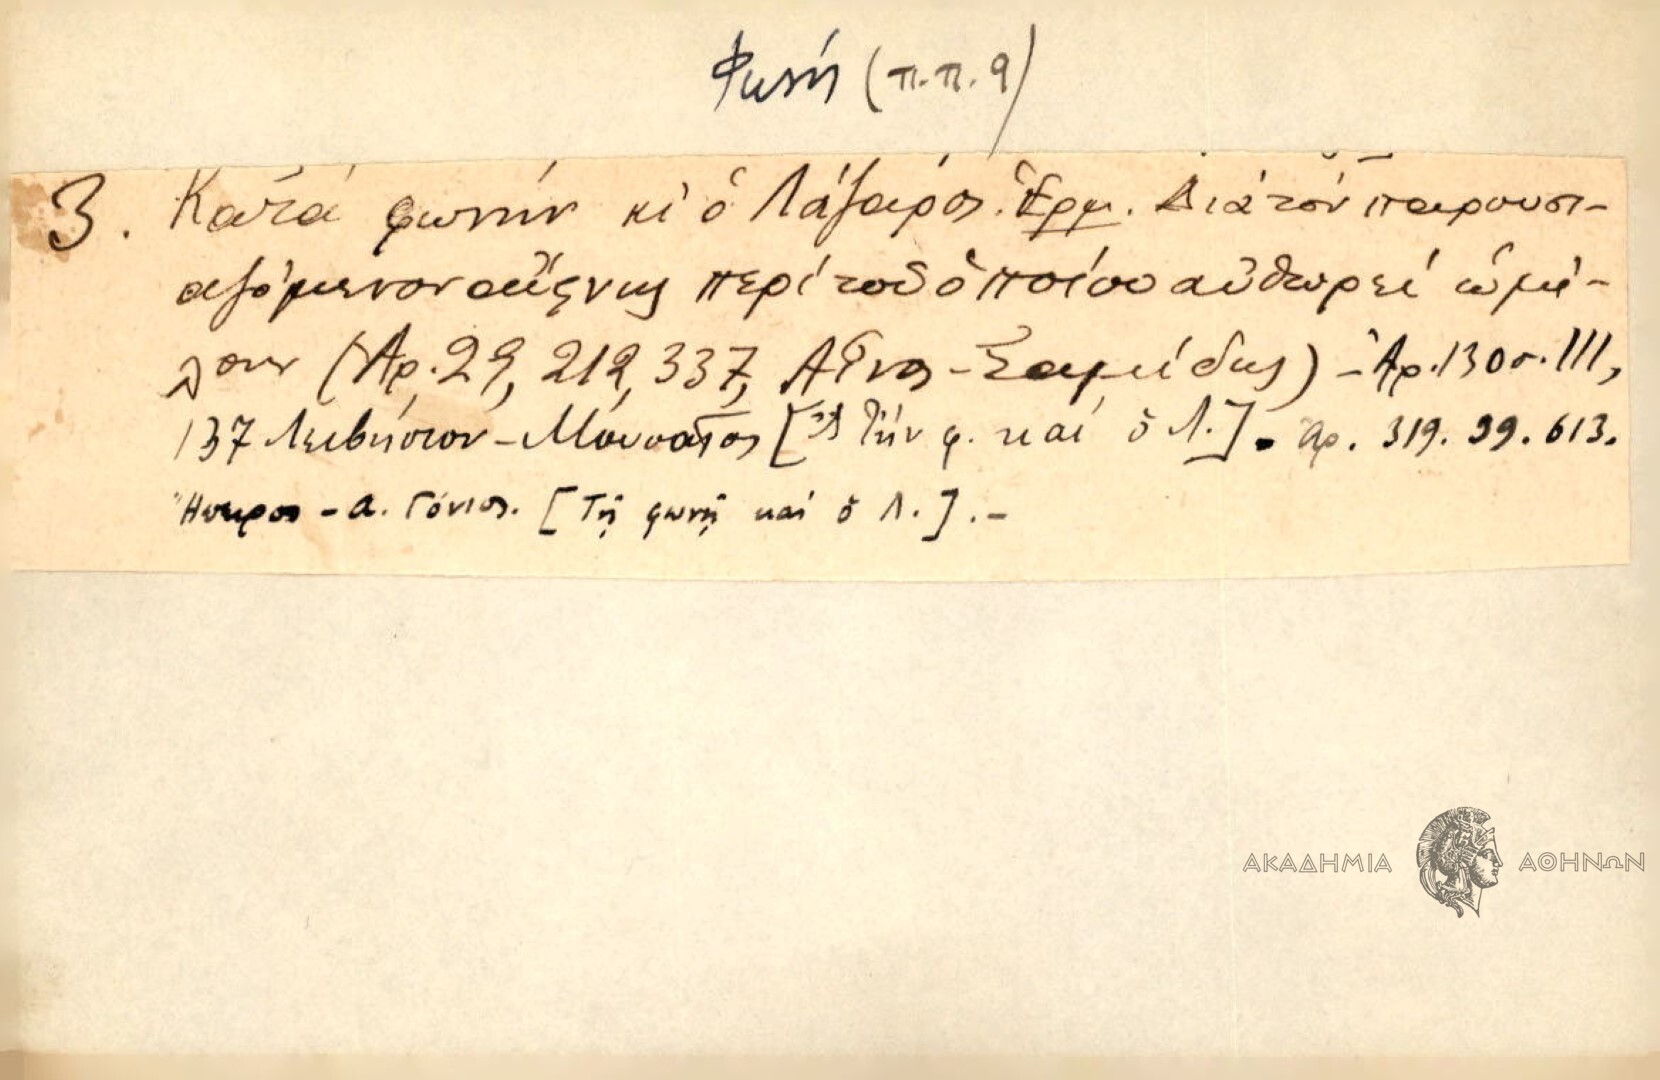 Φωνή (π.π. 9)
3. Κατά φωνήν κι ὁ Λάζαρος. Ἑρμ. Διά τόν παρουσι-
αζόμενον αἴφνης περί τοῦ ὁποίου αὐθωρεί ὡμί-
λουν (Ἀρ. 29, 212, 337, Αἶνος - Σαμίδης) - Ἀρ. 130 σ. 111,
137 Λειβήσιον - Μουσαῖος [Τήν φ. καί ὁ Λ.]. Ἀρ. 319. 99. 613.
Ἤπειρος - Α. Γόνιος. [Τῇ φωνῇ καί ὁ Λ.]. -
ΑΚΑΔΗΜΙΑ ΑΘΗΝΩΝ